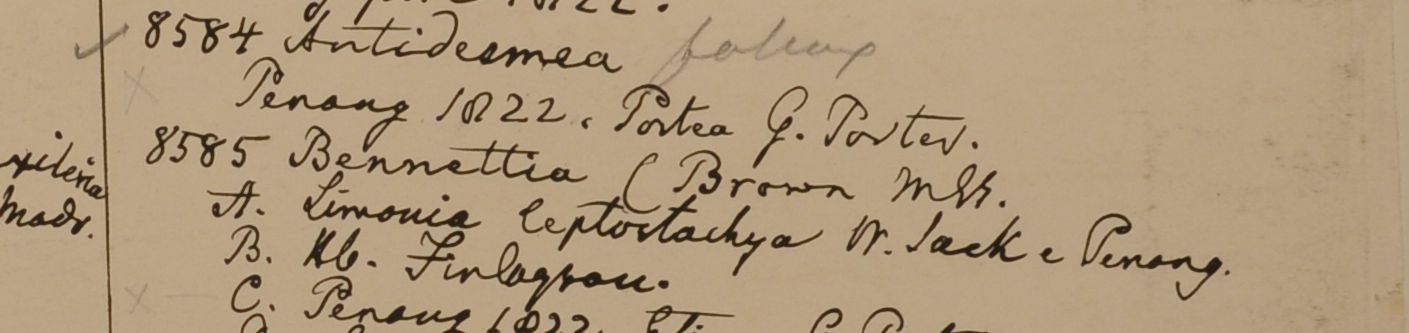 1822.
8584 Antidesmea
Penang 1822. Portea G. Porter.
8585 Bennettia (Brown MSS.
A. Limonia leptostachya W. Jack e Penang.
B. Hb. Finlayson.
C. Penang 1822.
Madr.